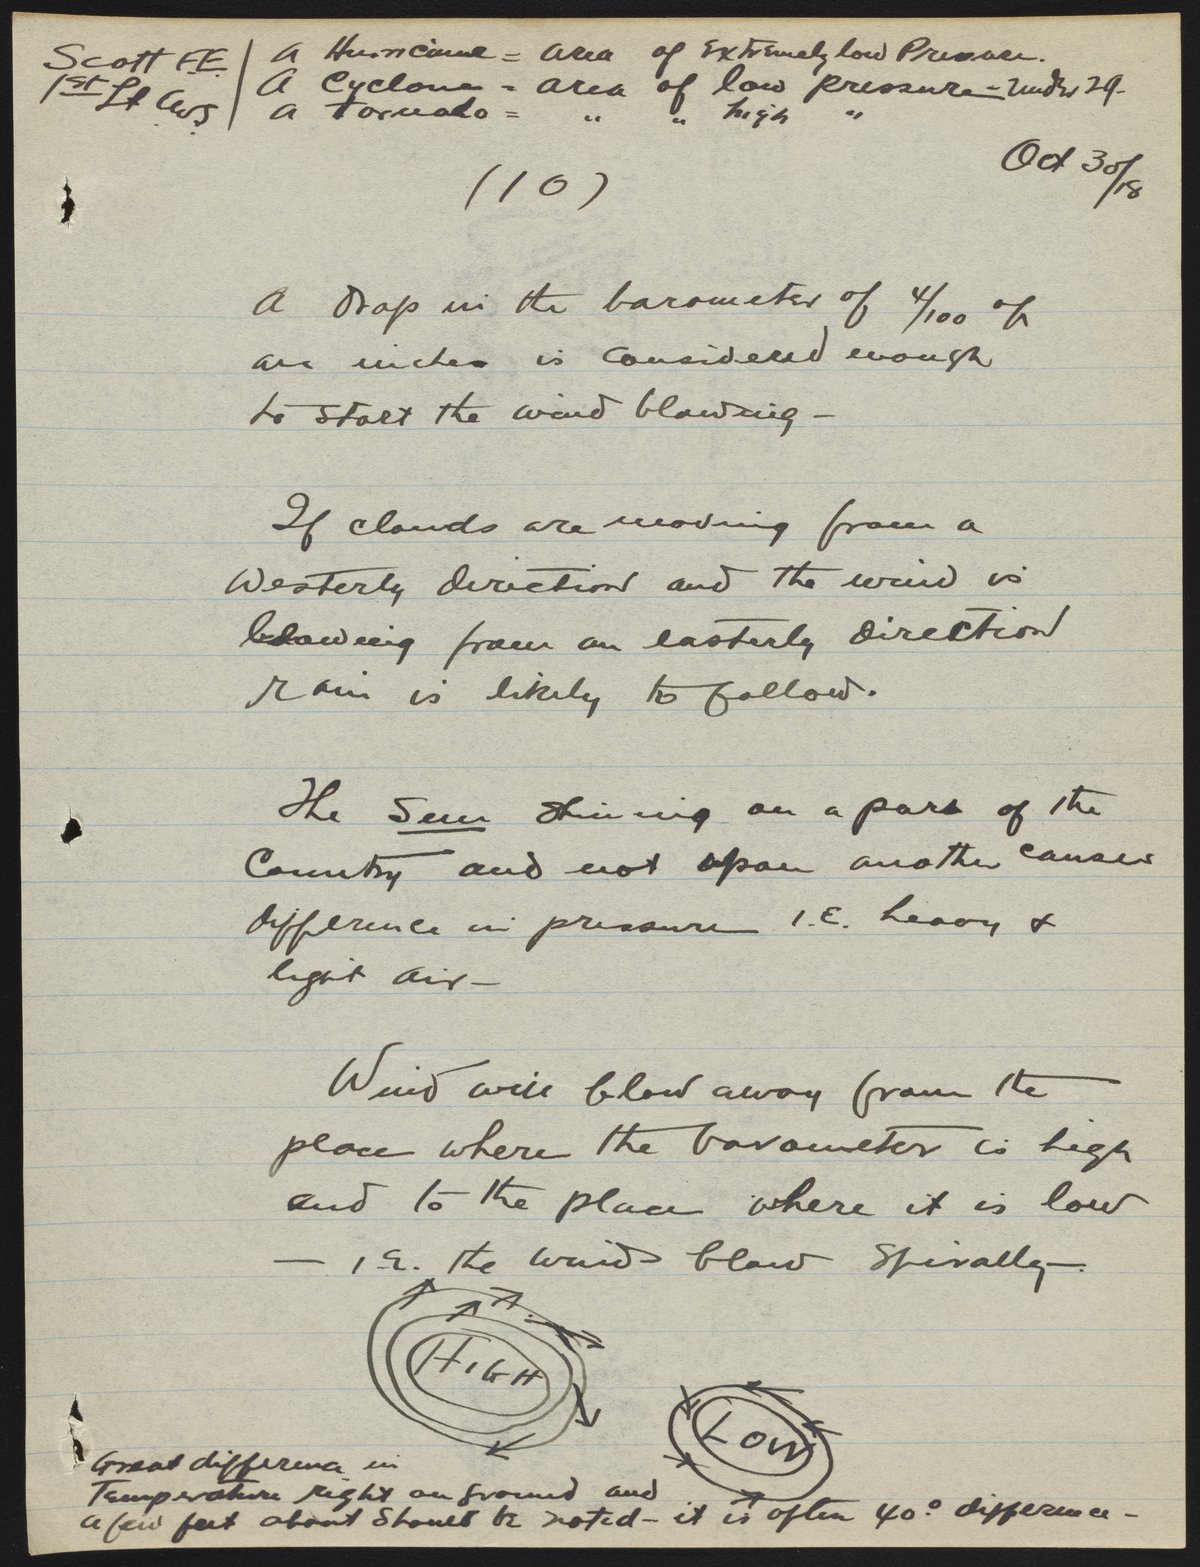 Scott F.E.
1st Lt AvS
A Hurricane = area of Extremely low Pressure.
A Cyclone = area of low pressure - under 29.
A Tornado = " " high "
Oct 30/18
(10)
A drop in the barometer of 4/100 of
an inches is considered enough
to start the wind blowing -
If clouds are moving from a
Westerly direction and the wind is
blowing from an easterly direction
rain is likely to follow.
The Sun shining on a part of the
Country and not upon another causes
difference in pressure I.E. heavy &
light air -
Wind will blow away from the
place where the barometer is high
and to the place where it is low
- I.E. the winds blow Spirally -
HIGH
LOW
Great difference in
Temperature right on ground and
a few feet about should be noted - it is often 40° difference -